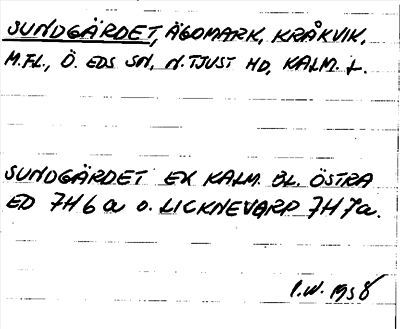 SUNDGÄRDET, ÄGOMARK, KRÅKVIK,
M.FL., Ö. EDS SN, N. TJUST HD, KALM. L.
SUNDGÄRDET EK KALM. BL. ÖSTRA
ED 7H 6 a o. LICKNEVARP 7H 7a.
I.W. 1958